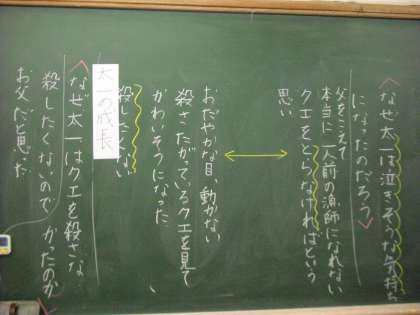 なぜ太一は泣きそうな気持ち
になったのだろう
父をこえて
本当に一人前の漁師になれない
クエをとらなければという
思い
おだやかな目、動かない
殺さたがているクエを見て
かわいそうになった
殺したくない
太一の成長
なぜ太一はクエを殺さな
かったのか
殺したくないので
お父だと思った